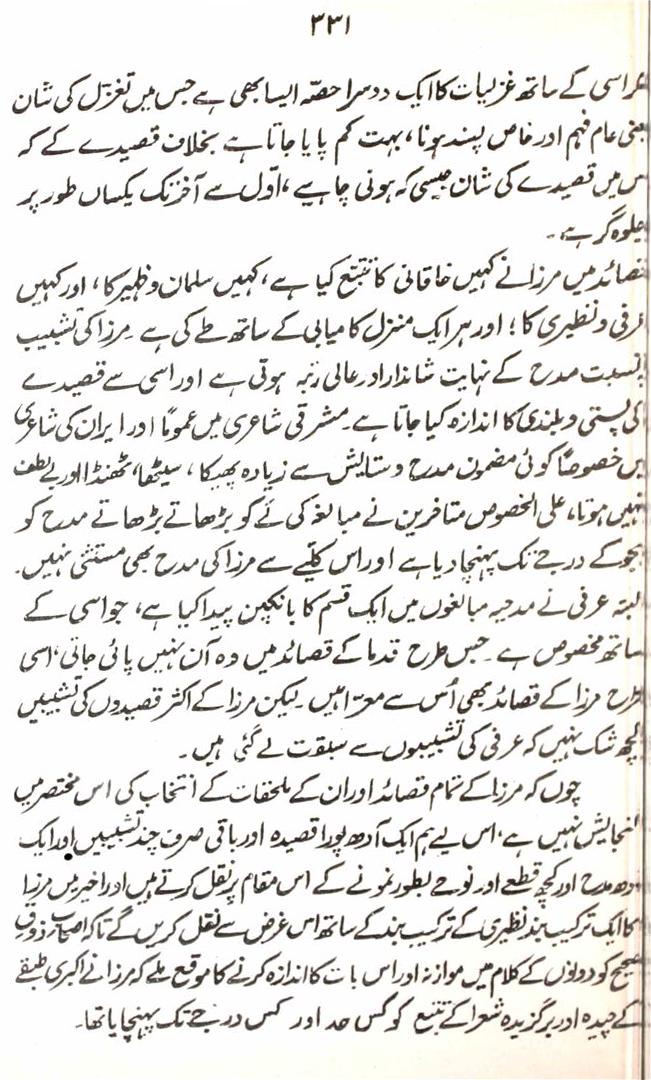 ۳۳۱
مگر اسی کے ساتھ غزلیات کا ایک دوسرا حصّہ ایسا بھی ہے جس میں تغزّل کی شان
یعنی عام فہم اور خاص پسند ہونا، بہت کم پایا جاتا ہے بخلاف قصیدے کے کہ
اس میں قصیدے کی شان جیسی کہ ہونی چاہیے، اوّل سے آخر تک یکساں طور پر
جلوہ گر ہے۔
قصائد میں مرزا نے کہیں خاقانی کا تتبّع کیا ہے، کہیں سلمان و ظہیر کا، اور کہیں
عرفی و نظیری کا؛ اور ہر ایک منزل کامیابی کے ساتھ طے کی ہے۔ مرزا کی تشبیب
بہ نسبت مدح کے نہایت شاندار اور عالی رتبہ ہوتی ہے اور اسی سے قصیدے
کی پستی و بلندی کا اندازہ کیا جاتا ہے۔ مشرقی شاعری میں عموماً اور ایران کی شاعری
میں خصوصاً کوئی مضمون مدح و ستایش سے زیادہ پھیکا، سیٹھا، ٹھنڈا اور بے لطف
نہیں ہوتا، علی الخصوص متاخرین نے مبالغہ کی لَے کو بڑھاتے بڑھاتے مدح کو
ہجو کے درجے تک پہنچا دیا ہے اور اس کلّیے سے مرزا کی مدح بھی مستثنٰی نہیں۔
البتہ عرفی نے مدحیہ مبالغوں میں ایک قسم کا بانکپن پیدا کیا ہے، جو اسی کے
ساتھ مخصوص ہے۔ جس طرح قدما کے قصائد میں وہ آن نہیں پائی جاتی، اسی
طرح مرزا کے قصائد بھی اُس سے معرّا ہیں۔ لیکن مرزا کے اکثر قصیدوں کی تشبیبیں
کچھ شک نہیں کہ عرفی کی تشبیبوں سے سبقت لے گئی ہیں۔
چوں کہ مرزا کے تمام قصائد اور ان کے ملحقات کے انتخاب کی اس مختصر میں
گنجایش نہیں ہے، اس لیے ہم ایک آدھ پورا قصیدہ اور باقی صرف چند تشبیبیں اور ایک
آدھ مدح اور کچھ قطعے اور نوحے بطور نمونے کے اس مقام پر نقل کرتے ہیں اور اخیر میں مرزا
کا ایک ترکیب بند نظیری کے ترکیب بند کے ساتھ اس غرض سے نقل کریں گے تاکہ اصحابِ ذوقِ
صحیح کو دونوں کے کلام میں موازنہ اور اس بات کا اندازہ کرنے کا موقع ملے کہ مرزا نے اکبری طبقے
کے چیدہ اور برگزیدہ شعرا کے تتبّع کو کس حد اور کس درجے تک پہنچایا تھا۔